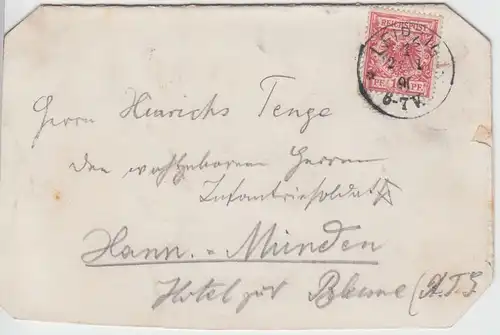 REICHSPOST
PF 10 PF
LEIPZIG
2 1
6-7V.
Herrn Heinrichs Tenge
den wohlgeborenen Herrn
Infantriesoldat
Hann. = Münden
Hotel zur Blume (A.T.